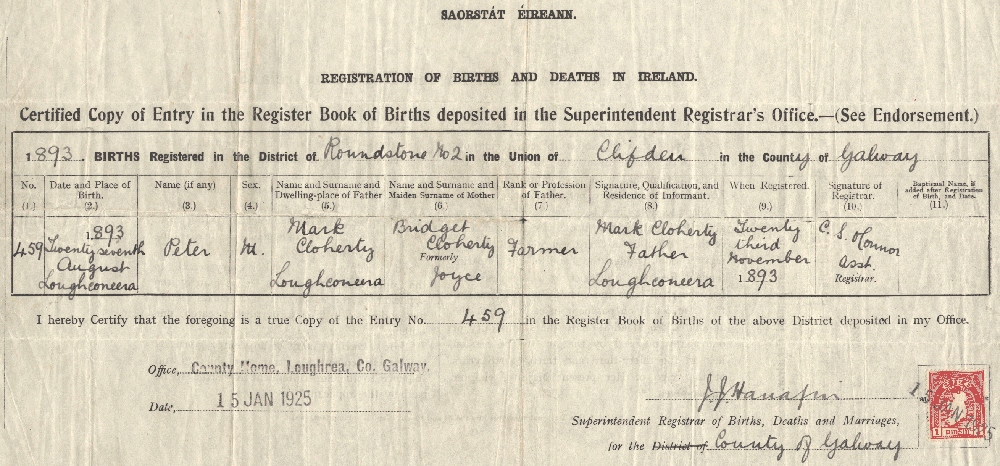 SAORSTÁT ÉIREANN.
REGISTRATION OF BIRTHS AND DEATHS IN IRELAND.
Certified Copy of Entry in the Register Book of Births deposited in the Superintendent Registrar's Office.—(See Endorsement.)
1893. BIRTHS Registered in the District of Roundstone No 2 in the Union of Clifden in the County of Galway
No. (1.)
Date and Place of Birth. (2.)
Name (if any) (3.)
Sex. (4.)
Name and Surname and Dwelling-place of Father (5.)
Name and Surname and Maiden Surname of Mother (6.)
Rank or Profession of Father. (7.)
Signature, Qualification, and Residence of Informant. (8.)
When Registered. (9.)
Signature of Registrar. (10.)
Baptismal Name, if added after Registration of Birth, and Date. (11.)
459
1893
Twenty seventh
August
Loughconeera
Peter
M.
Mark
Cloherty
Loughconeera
Bridget
Cloherty
Formerly
Joyce
Farmer
Mark Cloherty
Father
Loughconeera
Twenty
third
November
1893
C. S. O'Connor
Asst.
Registrar.
I hereby Certify that the foregoing is a true Copy of the Entry No. 459 in the Register Book of Births of the above District deposited in my Office.
Office, County Home, Loughrea, Co. Galway.
Date, 15 JAN 1925
J J Hanafin
Superintendent Registrar of Births, Deaths and Marriages,
for the District of County of Galway